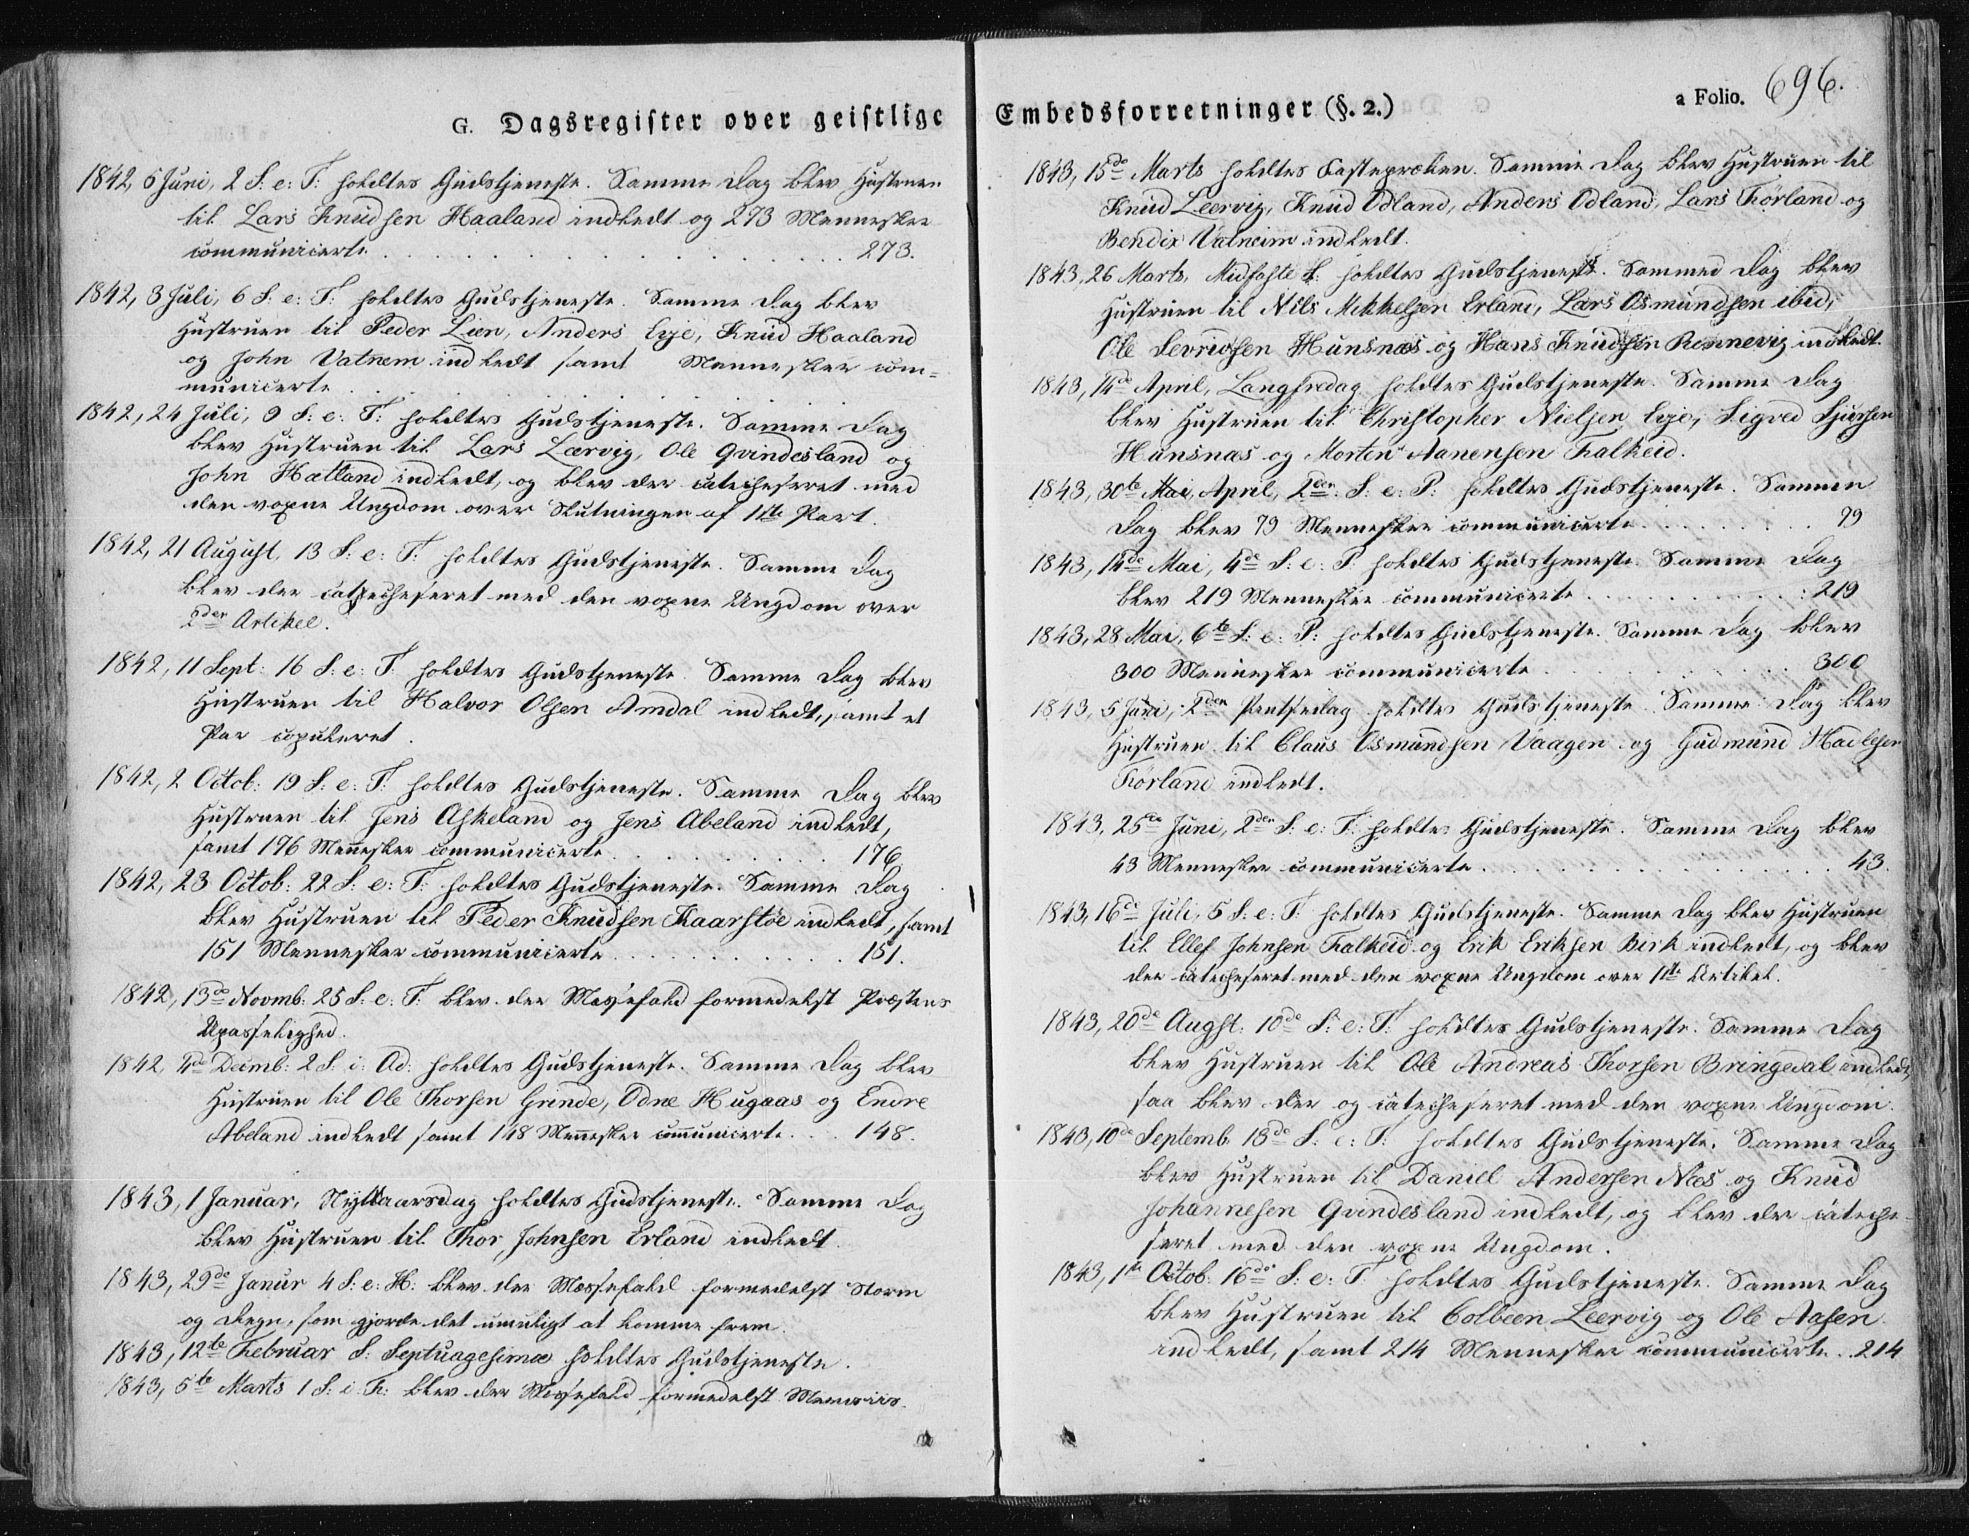 G. Dagsregister over geistlige
1842, 5 Juni, 2 S: e: T: holdtes Gudstjeneste. Samme Dag blev Hustruen
til Lars Knudsen Haaland indledt og 273 Mennesker
communicerte . . . 273.
1842, 3 Juli, 6 S: e: T: holdtes Gudstjeneste. Samme Dag blev
Hustruen til Peder Lien, Anders Eyje, Knud Haaland
og John Vatnem indledt samt Mennesker com=
municerte . . .
1842, 24 Juli, 9 S: e: T: holdtes Gudstjeneste. Samme Dag
blev Hustruen til Lars Lærvig, Ole Qvindesland og
John Hætland indledt, og blev der catecheseret med
den voxne Ungdom over Slutningen af 1ste Part.
1842, 21 August, 13 S: e: T: holdtes Gudstjeneste. Samme Dag
blev der catecheseret med den voxne Ungdom over
2den Artikel.
1842, 11 Sept: 16 S: e: T: holdtes Gudstjeneste. Samme Dag blev
Hustruen til Halvor Olsen Amdal indledt, samt et
Par copuleret.
1842, 2 Octob: 19 S: e: T: holdtes Gudstjeneste. Samme Dag blev
Hustruen til Jens Askeland og Jens Abeland indledt,
samt 176 Mennesker communicerte . . . 176
1842, 23 Octob: 22 S: e: T: holdtes Gudstjeneste. Samme Dag
blev Hustruen til Peder Knudsen Kaarstøe indledt, samt
151 Mennesker communicerte . . . 151.
1842, 13de Novmb: 25 S: e: T: blev der Messefald formedelst Præstens
Upasselighed.
1842, 4de Decmb: 2 S: i: Ad: holdtes Gudstjeneste. Samme Dag blev
Hustruen til Ole Thorsen Grinde, Odne Hugaas og Endre
Abeland indledt samt 148 Mennesker communicerte . . . 148.
1843, 1 Januar, Nyttaarsdag holdtes Gudstjeneste. Samme Dag
blev Hustruen til Thor Johnsen Erland indledt.
1843, 29de Janur 4 S: e: H: blev der Messefald formedelst Storm
og Regn, som gjorde det umuligt at komme frem.
1843, 12te Februar S: Septuagesima holdtes Gudstjeneste.
1843, 5te Marts 1 S: i F: blev der Messefald formedelst
Embedsforretninger (§. 2.)
a Folio. 696.
1843, 15de Marts holdtes Fasteprœken. Samme Dag blev Hustruen til
Knud Leervig, Knud Odland, Anders Odland, Lars Førland og
Bendix Valneim indledt.
1843, 26 Marts, Midfaste S: holdtes Gudstjeneste. Samme Dag blev
Hustruen til Nils Mikkelsen Erland, Lars Osmundsen ibid,
Ole Sevridsen Hunsnæs og Hans Knudsen Rønnevig indledt.
1843, 14de April, Langfredag holdtes Gudstjeneste. Samme Dag
blev Hustruen til Christopher Nielsen Eyje, Sigved Sjursen
Hunsnæs og Morten Aanensen Falkeid.
1843, 30te Mai, April, 2den S: e: P: holdtes Gudstjeneste. Samme
Dag blev 79 Mennesker communicerte . . . 79
1843, 14de Mai, 4de S: e: P: holdtes Gudstjeneste. Samme Dag
blev 219 Mennesker communicerte . . . 219
1843, 28 Mai, 6te S: e: P: holdtes Gudstjeneste. Samme Dag blev
300 Mennesker communicerte . . . 300
1843, 5 Juni, 2den Pintsedag holdtes Gudstjeneste. Samme Dag blev
Hustruen til Claus Osmundsen Vaagen og Gudmund
Førland indledt.
1843, 25te Juni, 2den S: e: T: holdtes Gudstjeneste. Samme Dag blev
43 Mennesker communicerte . . . 43.
1843, 16de Juli, 5 S: e: T: holdtes Gudstjeneste. Samme Dag blev Hustruen
til Ellef Johnsen Falkeid og Erik Eriksen Birk indledt, og blev
der catecheseret med den voxne Ungdom over 1ste Artikel.
1843, 20de Augst: 10de S: e: T: holdtes Gudstjeneste. Samme Dag
blev Hustruen til Ole Andreas Thorsen Bringedal indledt,
saa blev der og catecheseret med den voxne Ungdom.
1843, 10de Septemb. 13de S: e: T: holdtes Gudstjeneste. Samme Dag
blev Hustruen til Daniel Andersen Næs og Knud
Johannesen Qvindesland indledt, og blev der cateche-
seret med den voxne Ungdom.
1843, 1te Octob: 16de S: e: T: holdtes Gudstjeneste. Samme Dag
blev Hustruen til Colbeen Leervig og Ole Aasen
indledt, samt 214 Mennesker communicerte . . 214